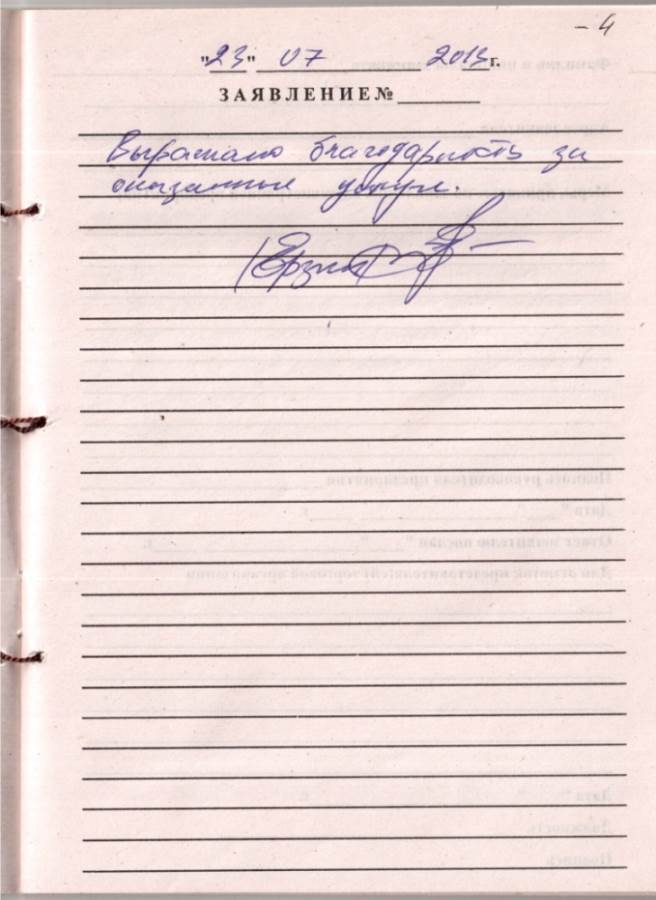 - 4
"23" 07 2013 г.
ЗАЯВЛЕНИЕ № ________
Выражаю благодарность за
оказанные услуги.